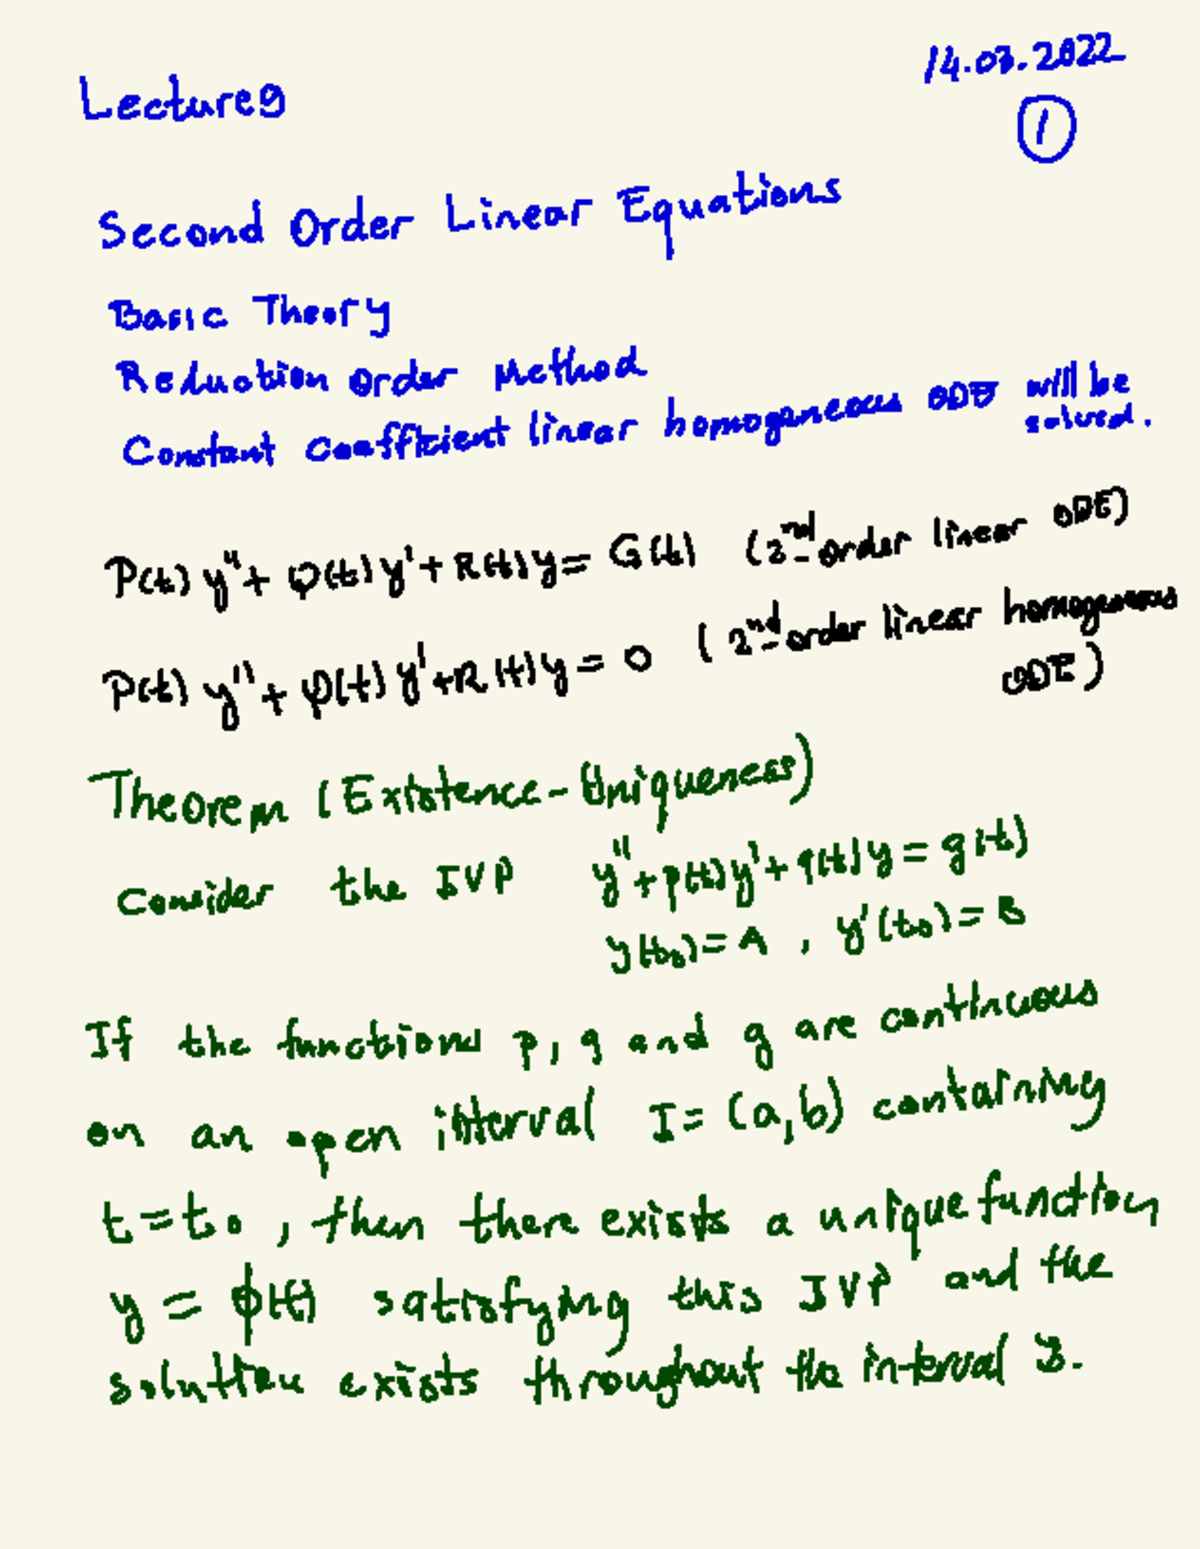 14.03.2022
Lecture 9
1
Second Order Linear Equations
Basic Theory
Reduction Order Method
Constant coefficient linear homoganeous ODE will be solved.
P(t) y'' + Q(t) y' + R(t) y = G(t) (2nd order linear ODE)
P(t) y'' + Q(t) y' + R(t) y = 0 (2nd order linear homogeneous
ODE)
Theorem (Existence-Uniqueness)
Consider the IVP y'' + p(t) y' + q(t) y = g(t)
y(t₀) = A , y'(t₀) = B
If the functions p, q and g are continuous
on an open interval I = (a,b) containing
t = t₀ , then there exists a unique function
y = ϕ(t) satisfying this IVP and the
solution exists throughout the interval I.